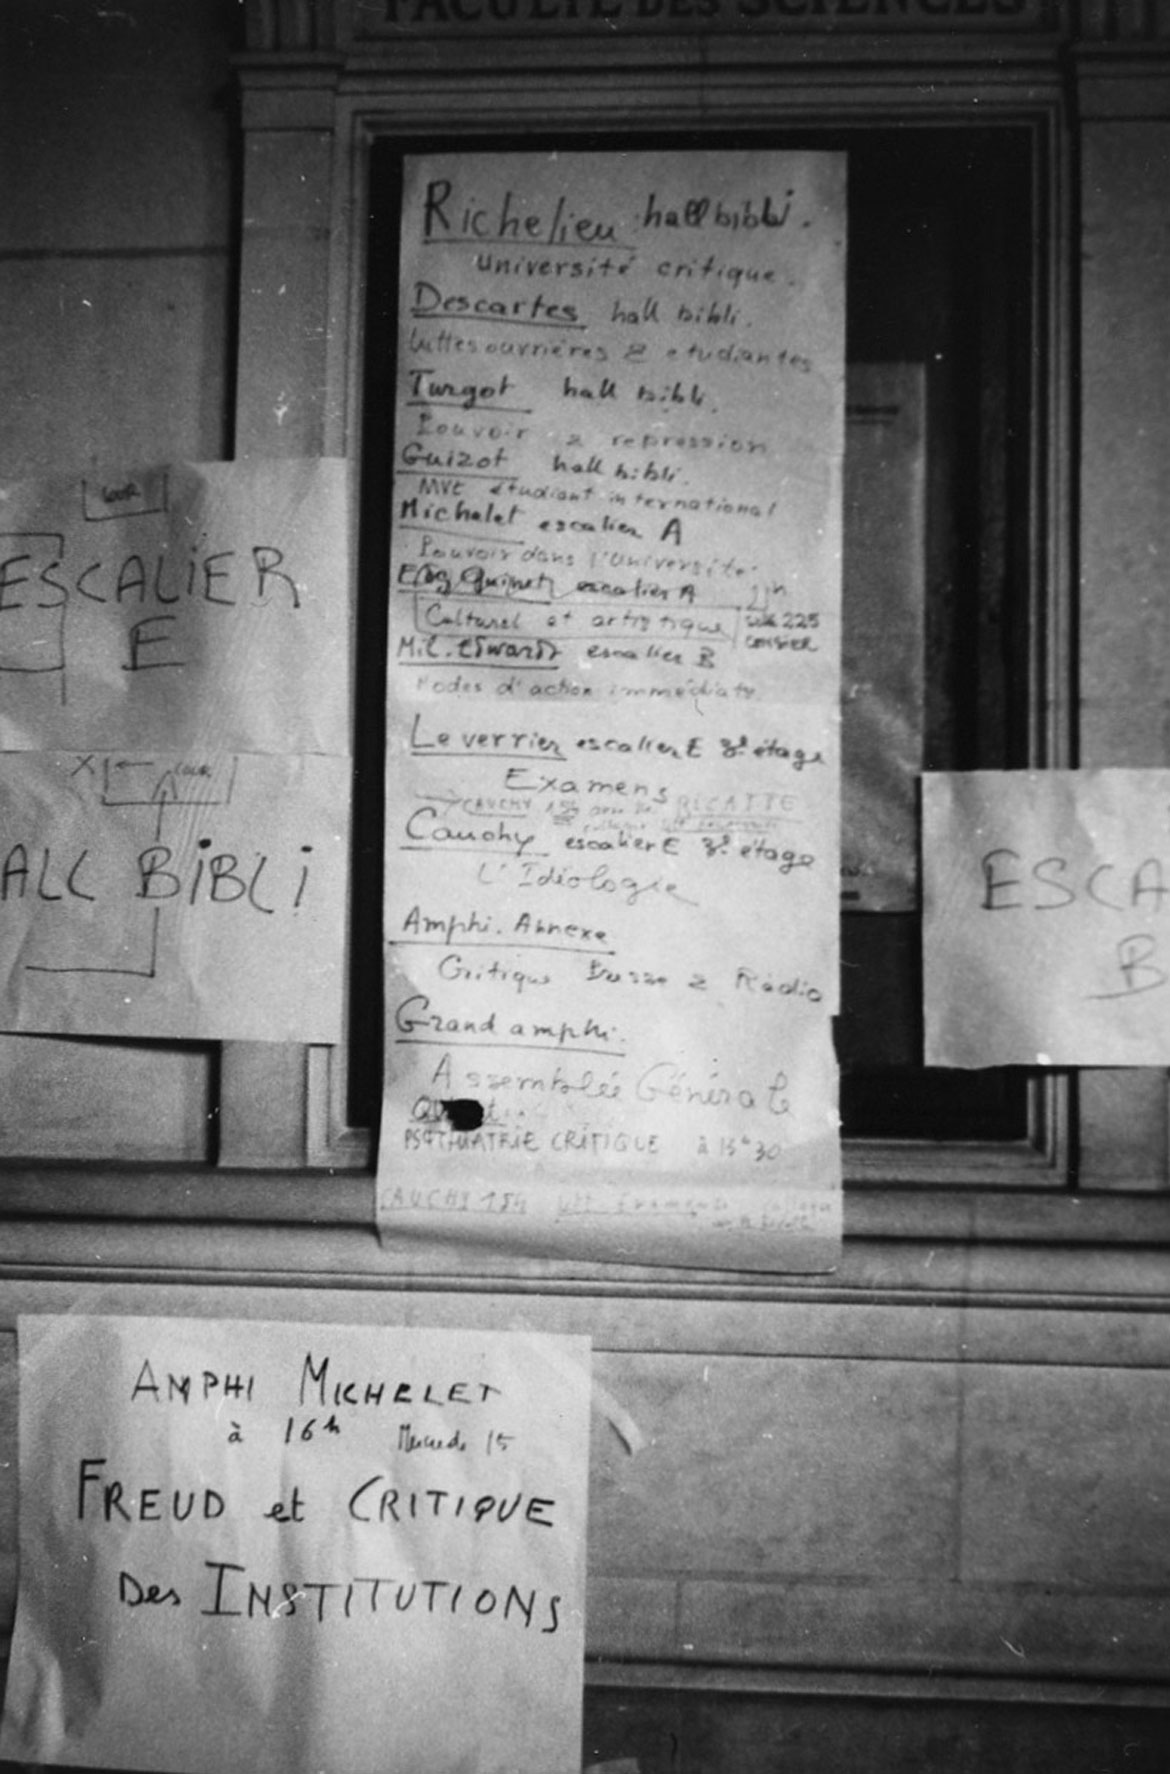 FACULTÉ DES SCIENCES
Richelieu hall bibli.
Université critique.
Descartes hall bibli.
Luttes ouvrières & etudiantes
Turgot hall bibli.
Pouvoir & repression
Guizot hall bibli.
MVt étudiant international
Michelet escalier A
Pouvoir dans l'Université
Edg Quinet escalier A
Culturel et artistique
225
Mil. Edwards escalier B
Modes d'action immédiats
Le verrier escalier E 3e étage
Examens
CAUCHY RICATTE
Cauchy escalier E 3e étage
L'Idéologie
Amphi. Annexe
Critique Presse & Radio
Grand amphi.
Assemblée Générale
PSYCHIATRIE CRITIQUE à 15h30
CAUCHY 154
COUR
ESCALIER
E
COUR
ALL BIBLI
ESCA
B
AMPHI MICHELET
à 16h Mercredi 15
FREUD et CRITIQUE
Des INSTITUTIONS